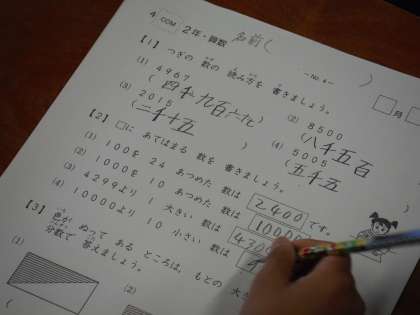 4 COM 2年・算数 名前(
【1】つぎの 数の 読み方を 書きましょう。 ーNo.6ー )
(1) 4967 (2) 8500
(四千九百六九) (八千五百
(3) 2015 (4) 5005
(二千十五 ) (五千五 )
【2】□に あてはまる 数を 書きましょう。
(1) 100を 24 あつめた 数は 2400 です。
(2) 1000を 10 あつめた 数は 10000
(3) 4299より 1 大きい 数は 430
(4) 10000より 10 小さい 数は
【3】色が ぬって ある ところは、もとの 大
分数で 答えましょう。
(1) (2)
月